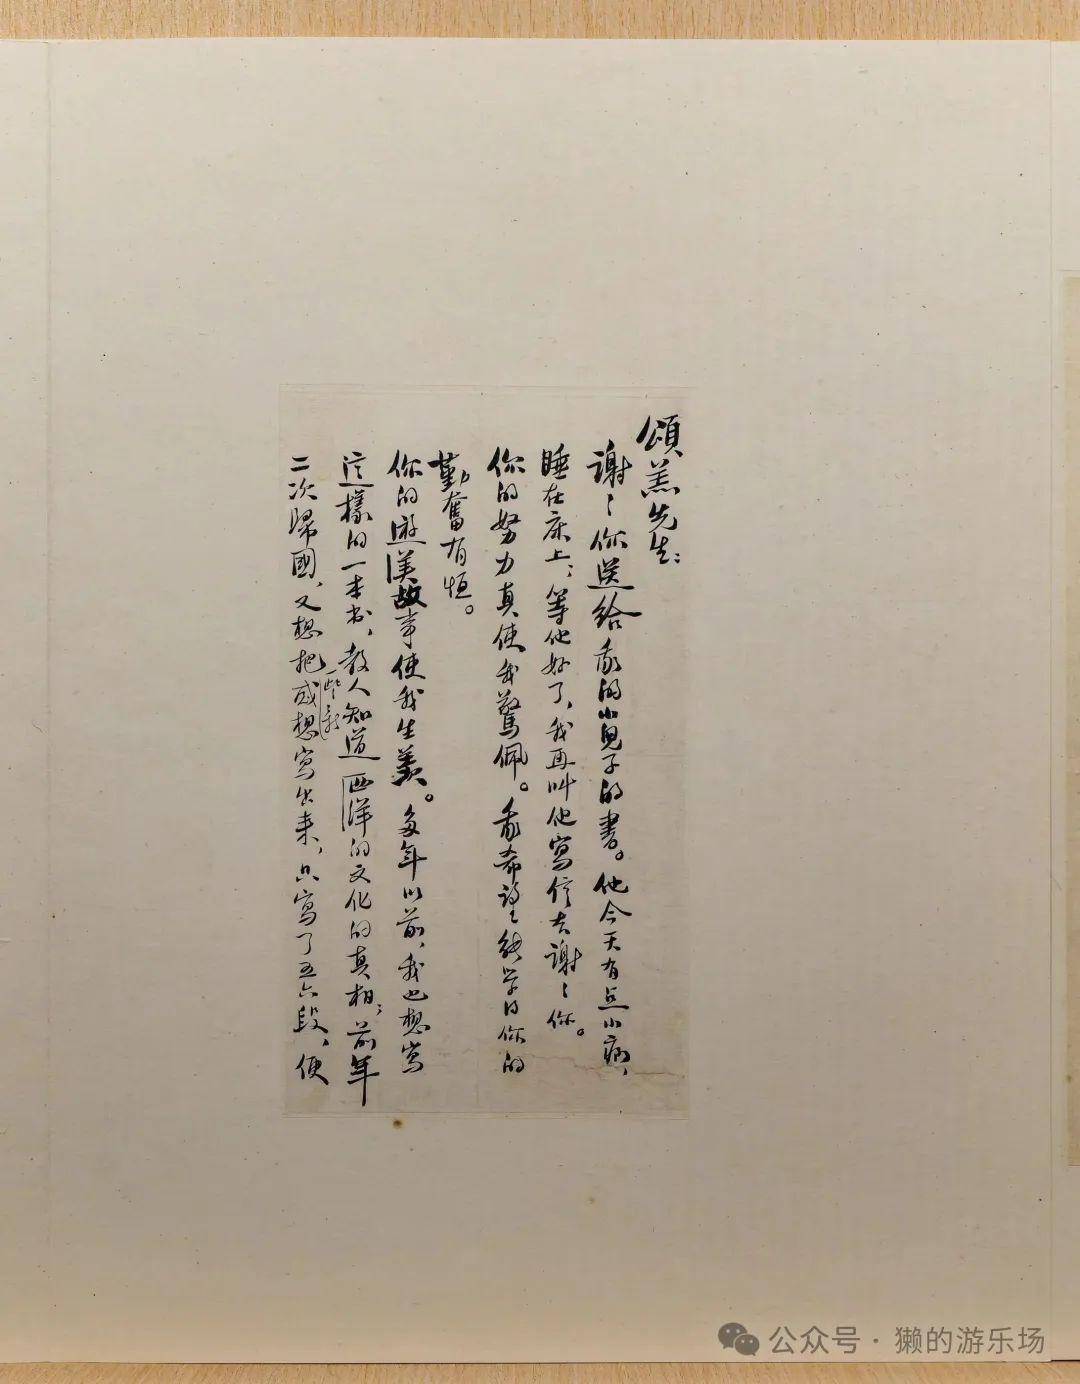 頌羔先生：
謝〻你送給我的小兒子的書。他今天有点小病，
睡在床上；等他好了，我再叫他寫信去謝〻你。
你的努力真使我驚佩。我希望能学得你的
勤奮有恒。
你的遊美故事使我生羨。多年以前，我也想寫
這樣的一本书，教人知道西洋的文化的真相；前年
二次歸國，又想把一些新感想寫出来，只寫了五六段，便
公众号 · 獭的游乐场